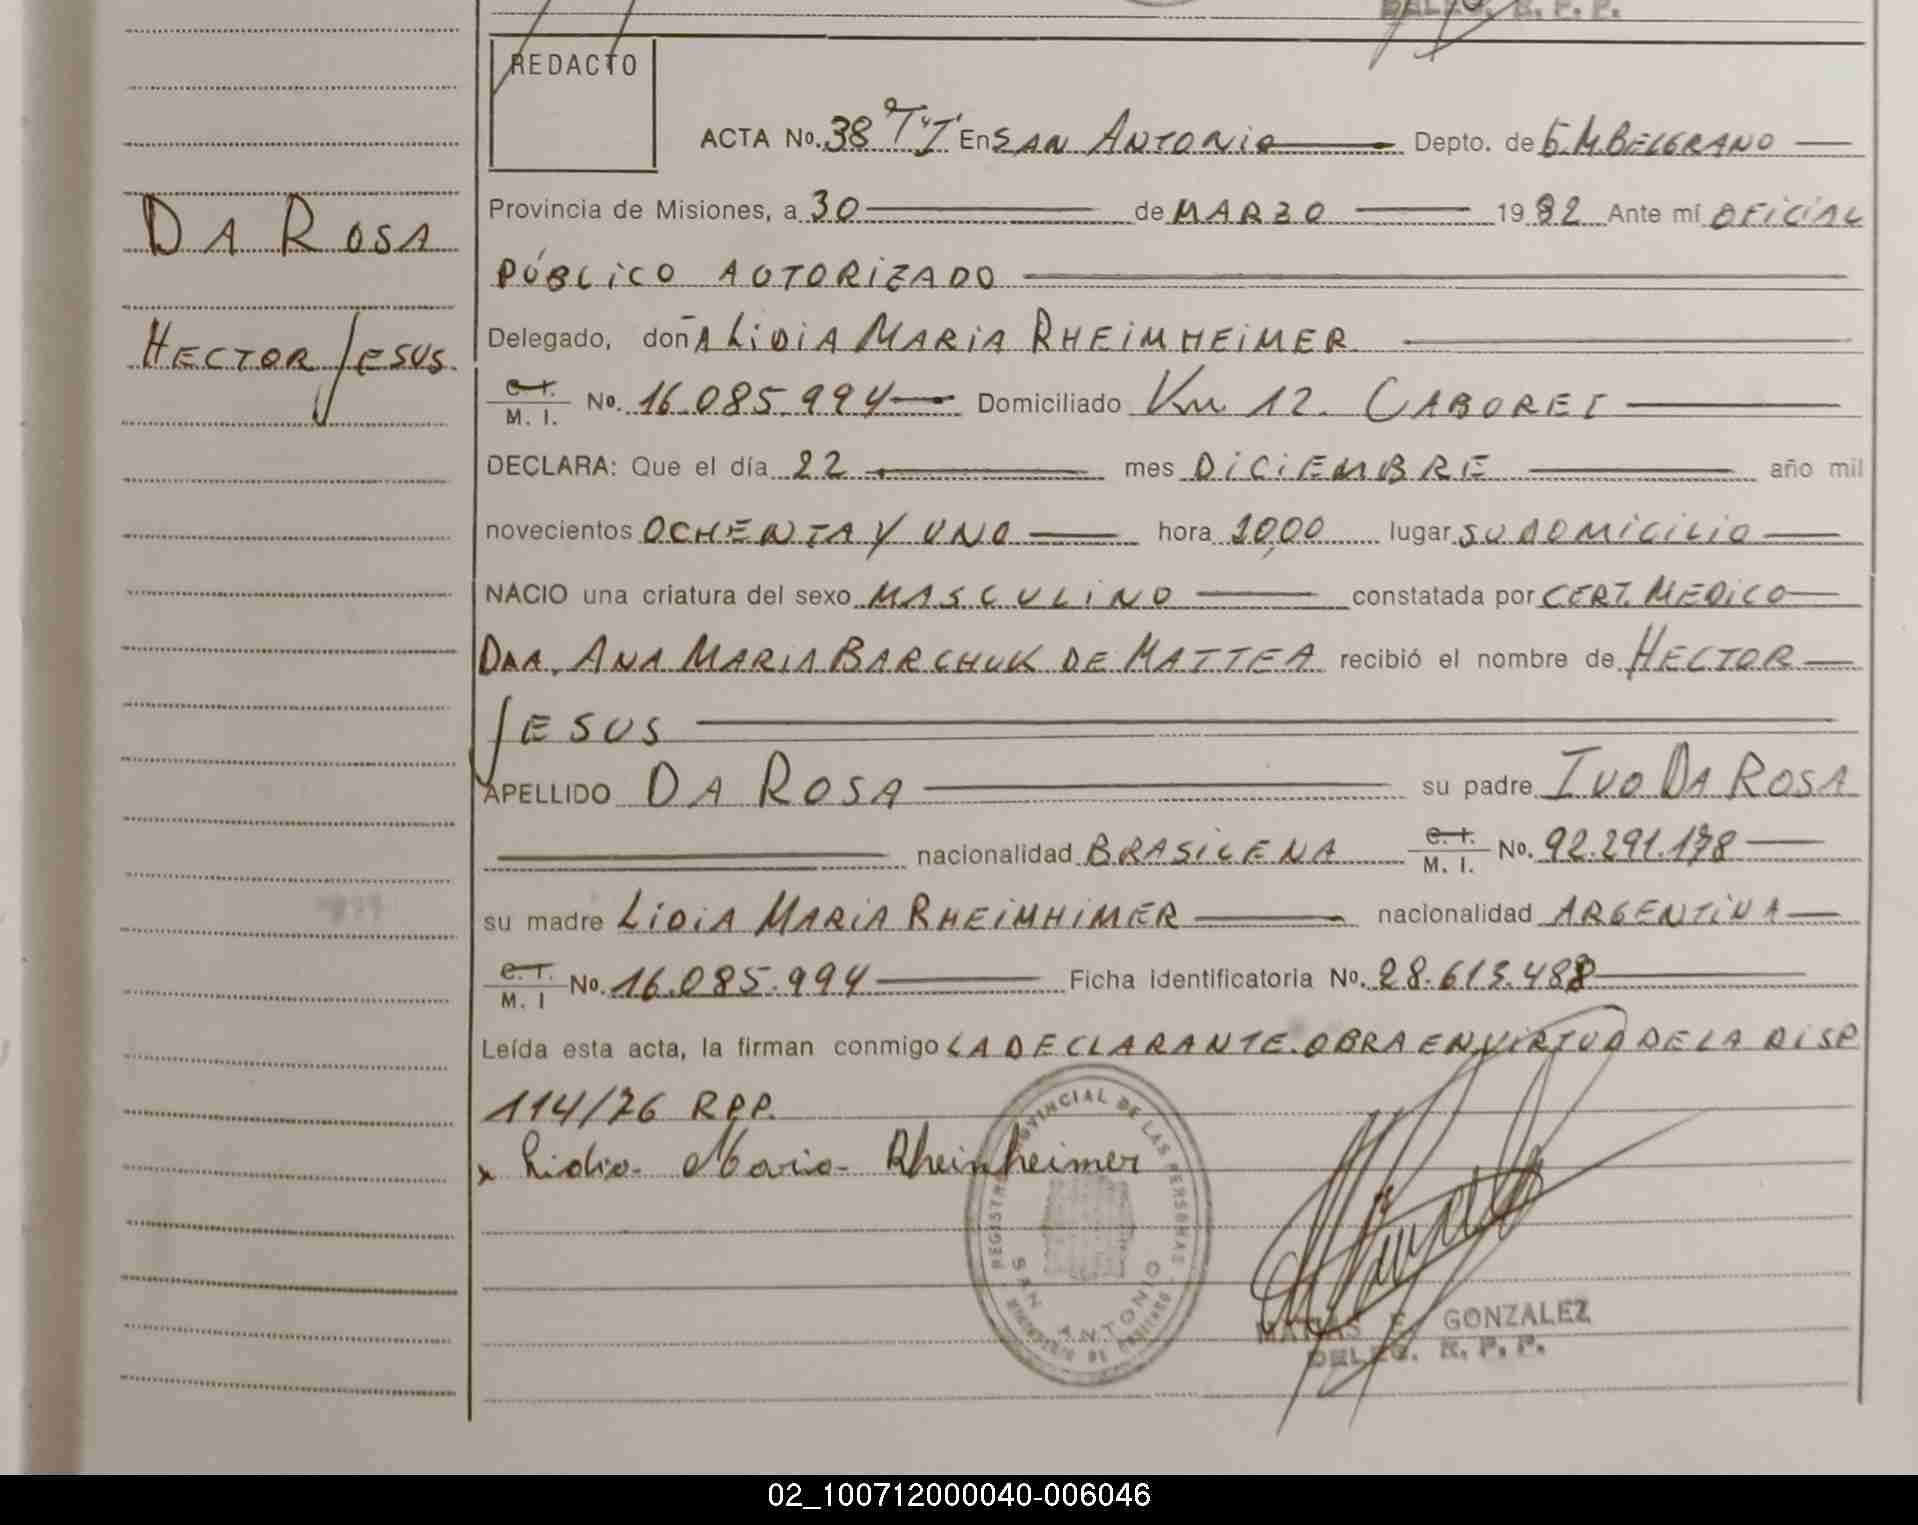 DELEG. R. P. P.
REDACTO
ACTA No. 38 "T" I En SAN ANTONIO Depto. de G.M.BELGRANO
Provincia de Misiones, a 30 de MARZO 1982 Ante mí OFICIAL
DA ROSA
PÚBLICO AUTORIZADO
Delegado, doñA LIDIA MARIA RHEIMHEIMER
HECTOR JESUS.
C. I. M. I. No. 16.085.994 Domiciliado Km 12. CABUREI
DECLARA: Que el día 22 mes DICIEMBRE año mil
novecientos OCHENTA Y UNO hora 10,00 lugar SU DOMICILIO
NACIO una criatura del sexo MASCULINO constatada por CERT. MEDICO
DRA. ANA MARIA BARCHUK DE MATTEA recibió el nombre de HECTOR
JESUS
APELLIDO DA ROSA su padre IVO DA ROSA
nacionalidad BRASILENA C. I. M. I. No. 92.291.178
su madre LIDIA MARIA RHEIMHIMER nacionalidad ARGENTINA
C. I. M. I No. 16.085.994 Ficha identificatoria No. 28.613.488
Leída esta acta, la firman conmigo LA DECLARANTE. OBRA EN VIRTUD DE LA DISP
114/76 RPP.
x Lidia Maria Rheinheimer
REGISTRO PROVINCIAL DE LAS PERSONAS
SAN ANTONIO
MINISTERIO DE GOBIERNO
MATIAS E. GONZALEZ
DELEG. R. P. P.
02_100712000040-006046